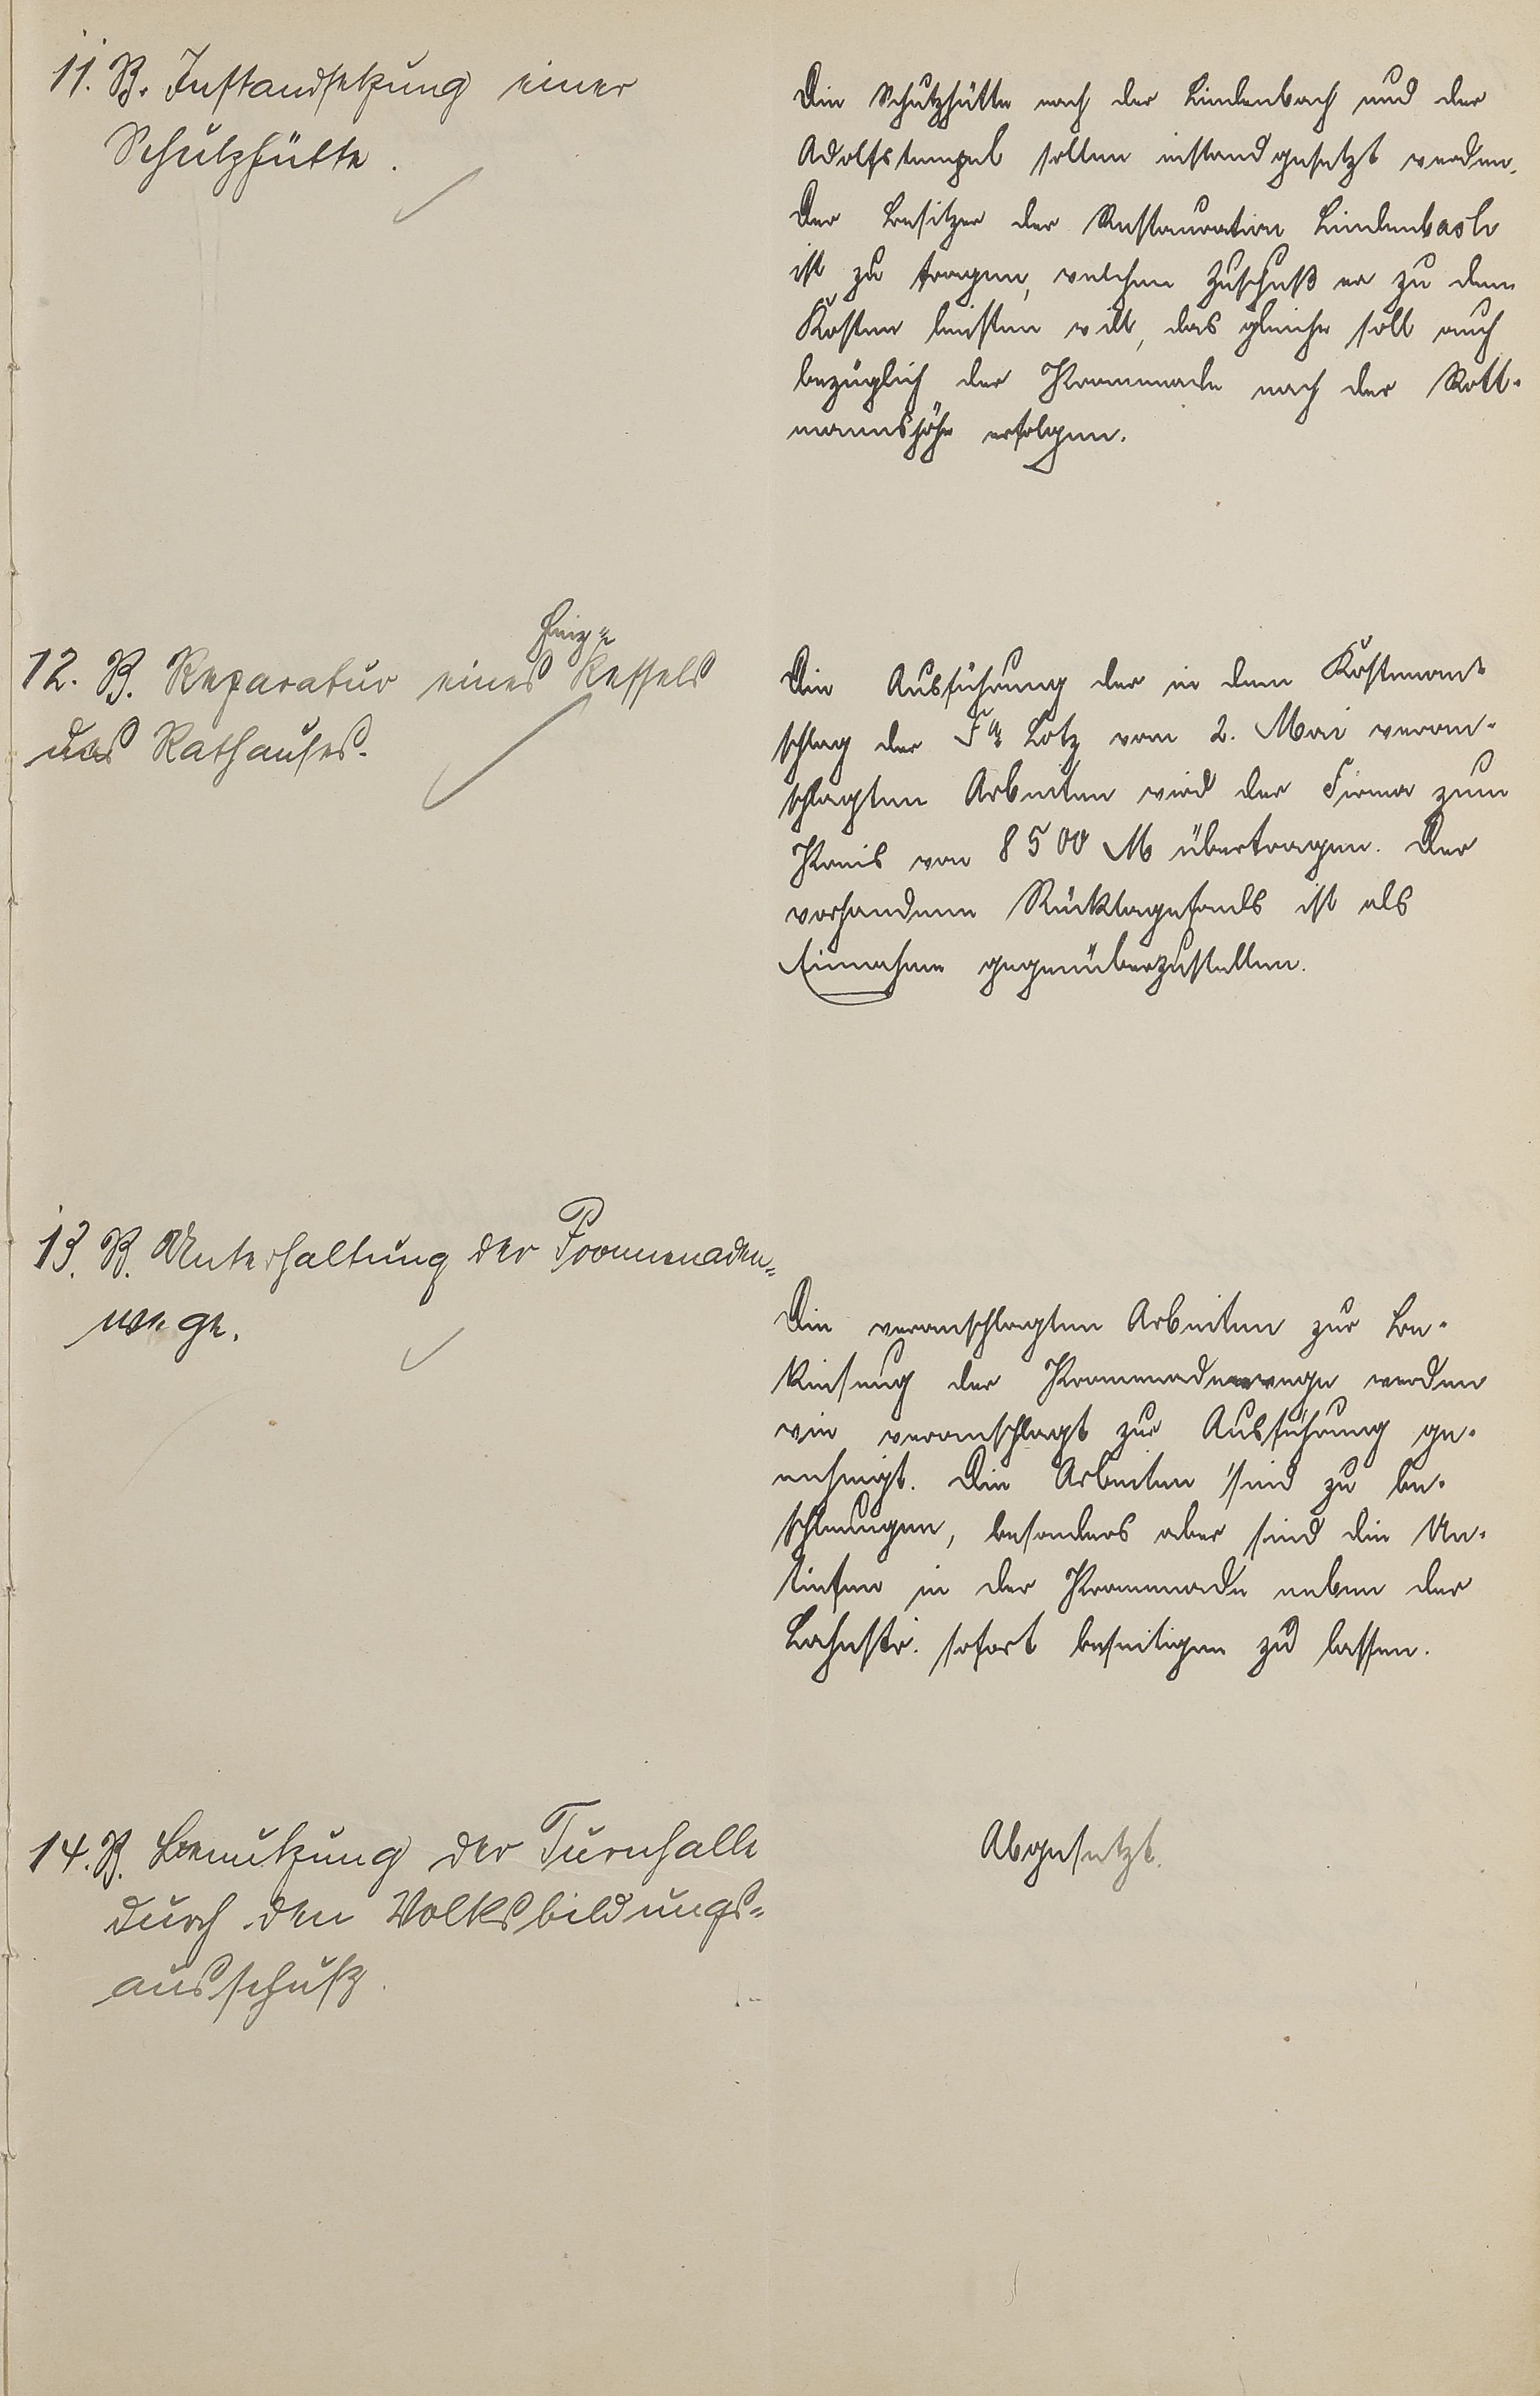 11. B. Instandsetzung einer
Schutzhütte.
Die Schutzhütte nach der Lindenbach und der
Adolfstempel sollen instand gesetzt werden.
Der Besitzer der Restauration Lindenbach
ist zu fragen, welchen Zuschuß er zu den
Kosten leisten will, das gleiche soll auch
bezüglich der Promenade nach der Rott-
mannshöhe erfolgen.
12. B. Reparatur eines Heiz=
Kessels
des Rathauses.
Die Ausführung der in dem Kostenan-
schlag der Fa Lotz vom 2. Mai veran-
schlagten Arbeiten wird der Firma zum
Preis von 8500 M übertragen. Der
vorhandene Rücklagefonds ist als
Einnahme gegenüberzustellen.
13. B. Unterhaltung der Promenaden=
wege.
Die veranschlagten Arbeiten zur Be-
kiesung der Promenadenwege werden
wie veranschlagt zur Ausführung ge-
nehmigt. Die Arbeiten sind zu be-
schleunigen, besonders aber sind die Un-
tiefen in der Promenade neben der
Lahnstr. sofort beseitigen zu lassen.
14. B. Benutzung der Turnhalle
durch den Volksbildungs=
ausschuß.
Abgesetzt.